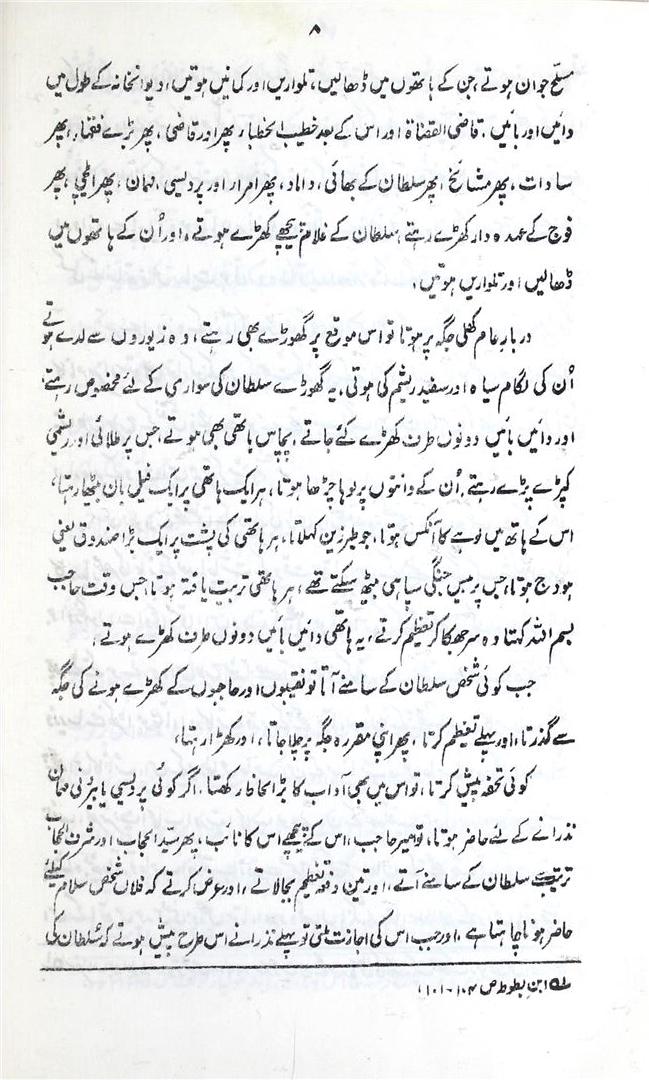 ۸
مسلح جوان ہوتے، جن کے ہاتھوں میں ڈھالیں، تلواریں اور کمانیں ہوتیں، دیوانخانہ کے طول میں
دائیں اور بائیں، قاضی القضاۃ اور اس کے بعد خطیب الخطباء، پھر اور قاضی، پھر بڑے فقہاء، پھر
سادات، پھر مشائخ، پھر سلطان کے بھائی، داماد، پھر امراء اور پردیسی مہمان، پھر ایلچی، پھر
فوج کے عہدہ دار کھڑے رہتے، سلطان کے غلام پیچھے کھڑے ہوتے، اور اُن کے ہاتھوں میں
ڈھالیں اور تلواریں ہوتیں،
دربار عام کھلی جگہ پر ہوتا تو اس موقع پر گھوڑے بھی رہتے، وہ زیوروں سے لدے ہوتے
اُن کی لگام سیاہ اور سفید ریشم کی ہوتی، یہ گھوڑے سلطان کی سواری کے لئے مخصوص رہتے،
اور دائیں بائیں دونوں طرف کھڑے کئے جاتے، پچاس ہاتھی بھی ہوتے، جس پر طلائی اور ریشمی
کپڑے پڑے رہتے، اُن کے دانتوں پر لوہا چڑھا ہوتا، ہر ایک ہاتھی پر ایک فیل بان بیٹھا رہتا،
اس کے ہاتھ میں لوہے کا آنکس ہوتا، جو طبرزین کہلاتا، ہر ہاتھی کی پشت پر ایک بڑا صندوق یعنی
ہودج ہوتا، جس پر بیس جنگی سپاہی بیٹھ سکتے تھے، ہر ہاتھی تربیت یافتہ ہوتا، جس وقت حاجب
بسم اللہ کہتا وہ سر جھکا کر تعظیم کرتے، یہ ہاتھی دائیں بائیں دونوں طرف کھڑے ہوتے،
جب کوئی شخص سلطان کے سامنے آتا تو نقیبوں اور حاجبوں کے کھڑے ہونے کی جگہ
سے گذرتا، اور پہلے تعظیم کرتا، پھر اپنی مقررہ جگہ پر چلا جاتا، اور کھڑا رہتا،
کوئی تحفہ پیش کرتا، تو اس میں بھی آداب کا بڑا لحاظ رکھتا، اگر کوئی پردیسی یا بیرونی مہمان
نذرانے کے لئے حاضر ہوتا، تو امیر حاجب، اس کے پیچھے اس کا نائب، پھر سید الحجاب اور شرف الحجاب
ترتیب سے سلطان کے سامنے آتے، اور تین دفعہ تعظیم بجا لاتے، اور عرض کرتے کہ فلاں شخص سلام کیلئے
حاضر ہونا چاہتا ہے، اور جب اس کی اجازت ملتی تو پہلے نذرانے اس طرح پیش ہوتے کہ سلطان کی
لہ ابن بطوطہ ص ۱۰۴-۱۰۱،